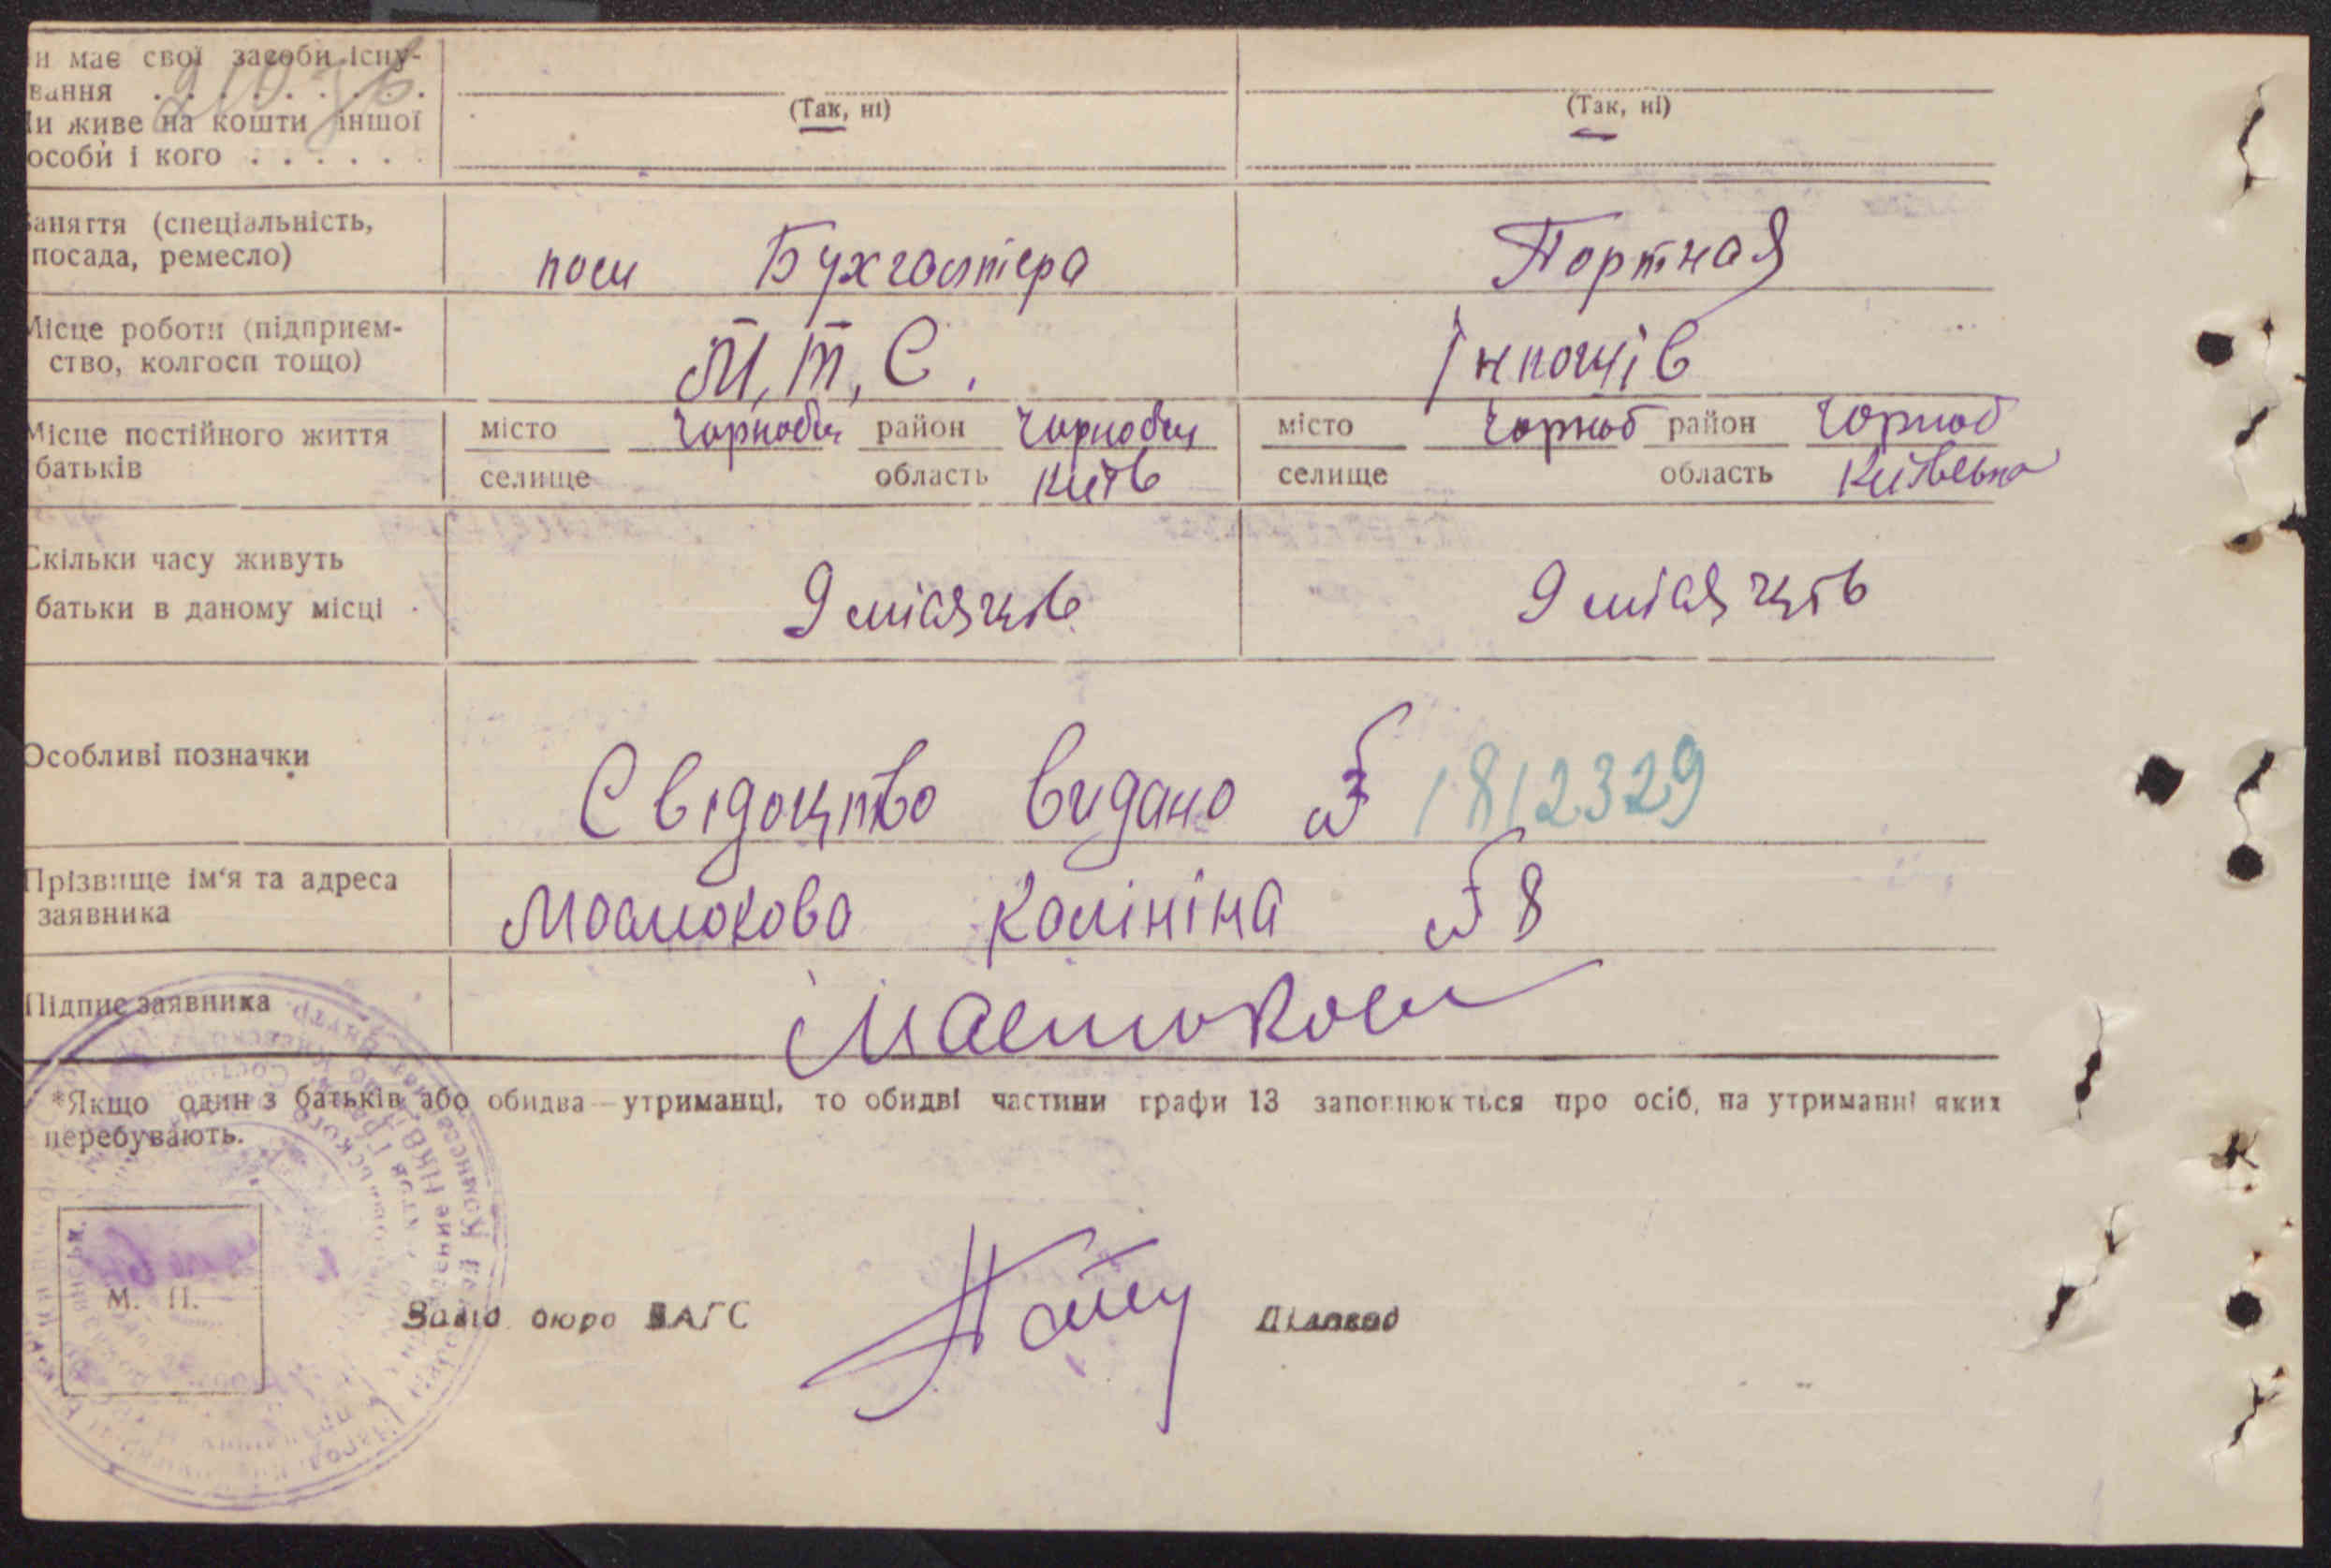 и має свої засоби існу-
вання . . . . . . . .
(Так, ні) (Так, ні)
и живе на кошти іншої
особи і кого . . . . . .
Заняття (спеціальність,
посада, ремесло)
пом Бухгалтера Портная
Місце роботи (підприєм-
ство, колгосп тощо)
М, Т, С. Інпошів
Місце постійного життя
батьків
місто Чорнобил район Чорнобил місто Чорноб район Чорноб
селище область Київ селище область Київська
Скільки часу живуть
батьки в даному місці
9 місяців 9 місяців
Особливі позначки
Свідоцтво видано № 1812329
Прізвище ім'я та адреса
заявника
Маслюкова Калініна № 8
Підпис заявника
*Якщо один з батьків або обидва—утриманці, то обидві частини графи 13 заповнюються про осіб, на утриманні яких
перебувають.
М. П.
Завід бюро ЗАГС Діловод